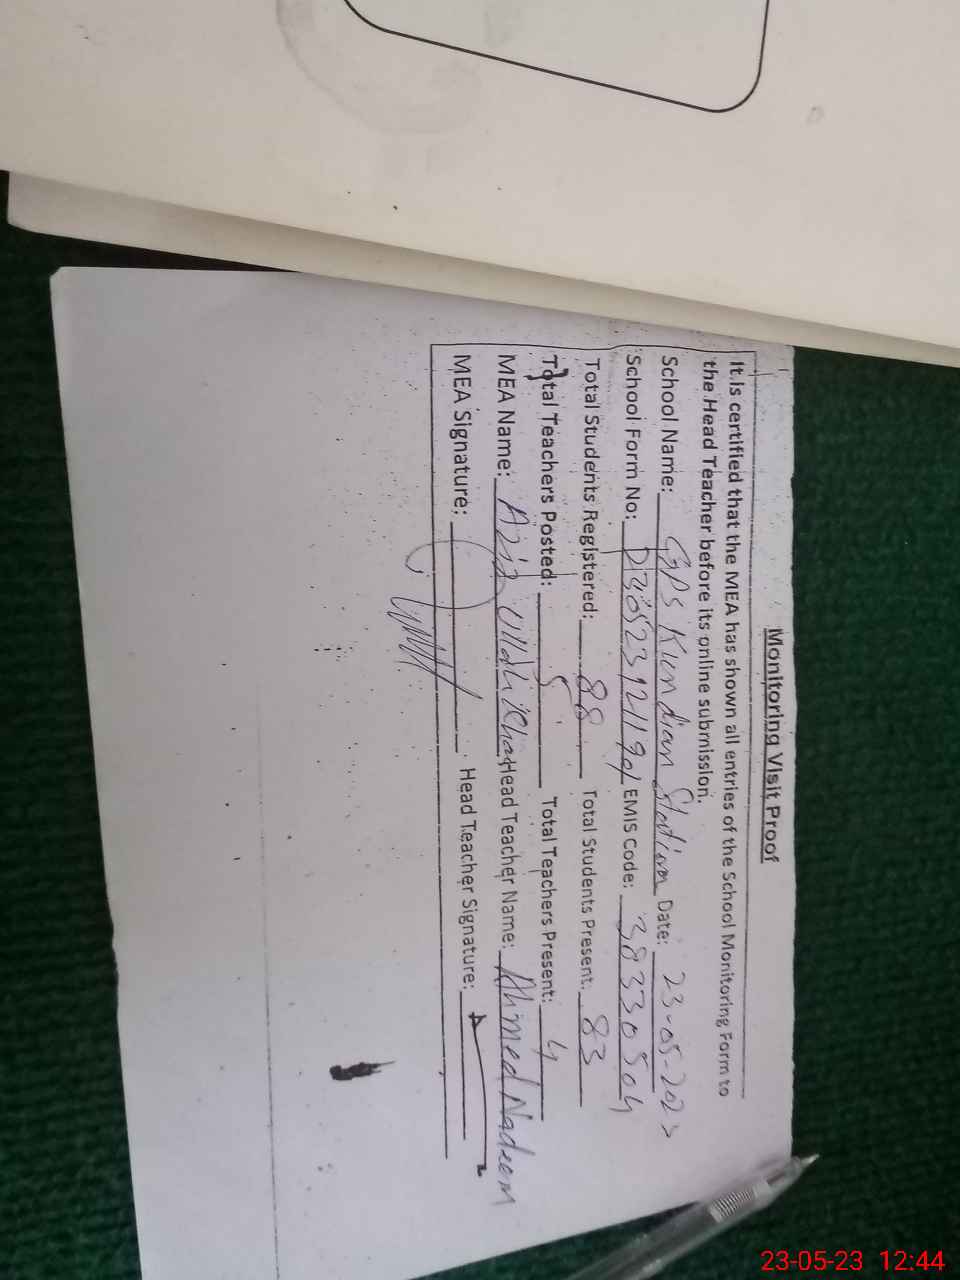 Monitoring Visit Proof
It is certified that the MEA has shown all entries of the School Monitoring Form to
the Head Teacher before its online submission.
School Name: GPS Kundian Station Date: 23-05-2023
School Form No: EMIS Code: 38330504
Total Students Registered: 88 Total Students Present: 83
Total Teachers Posted: 5 Total Teachers Present: 4
MEA Name: Aziz Ullah Khan Head Teacher Name: Ahmed Nadeem
MEA Signature: Head Teacher Signature:
23-05-23 12:44